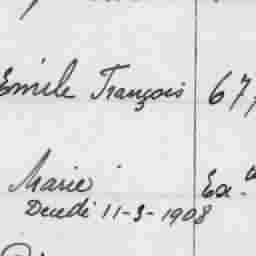 Emile François 67,
Marie Ex.
Decedé 11-3-1908